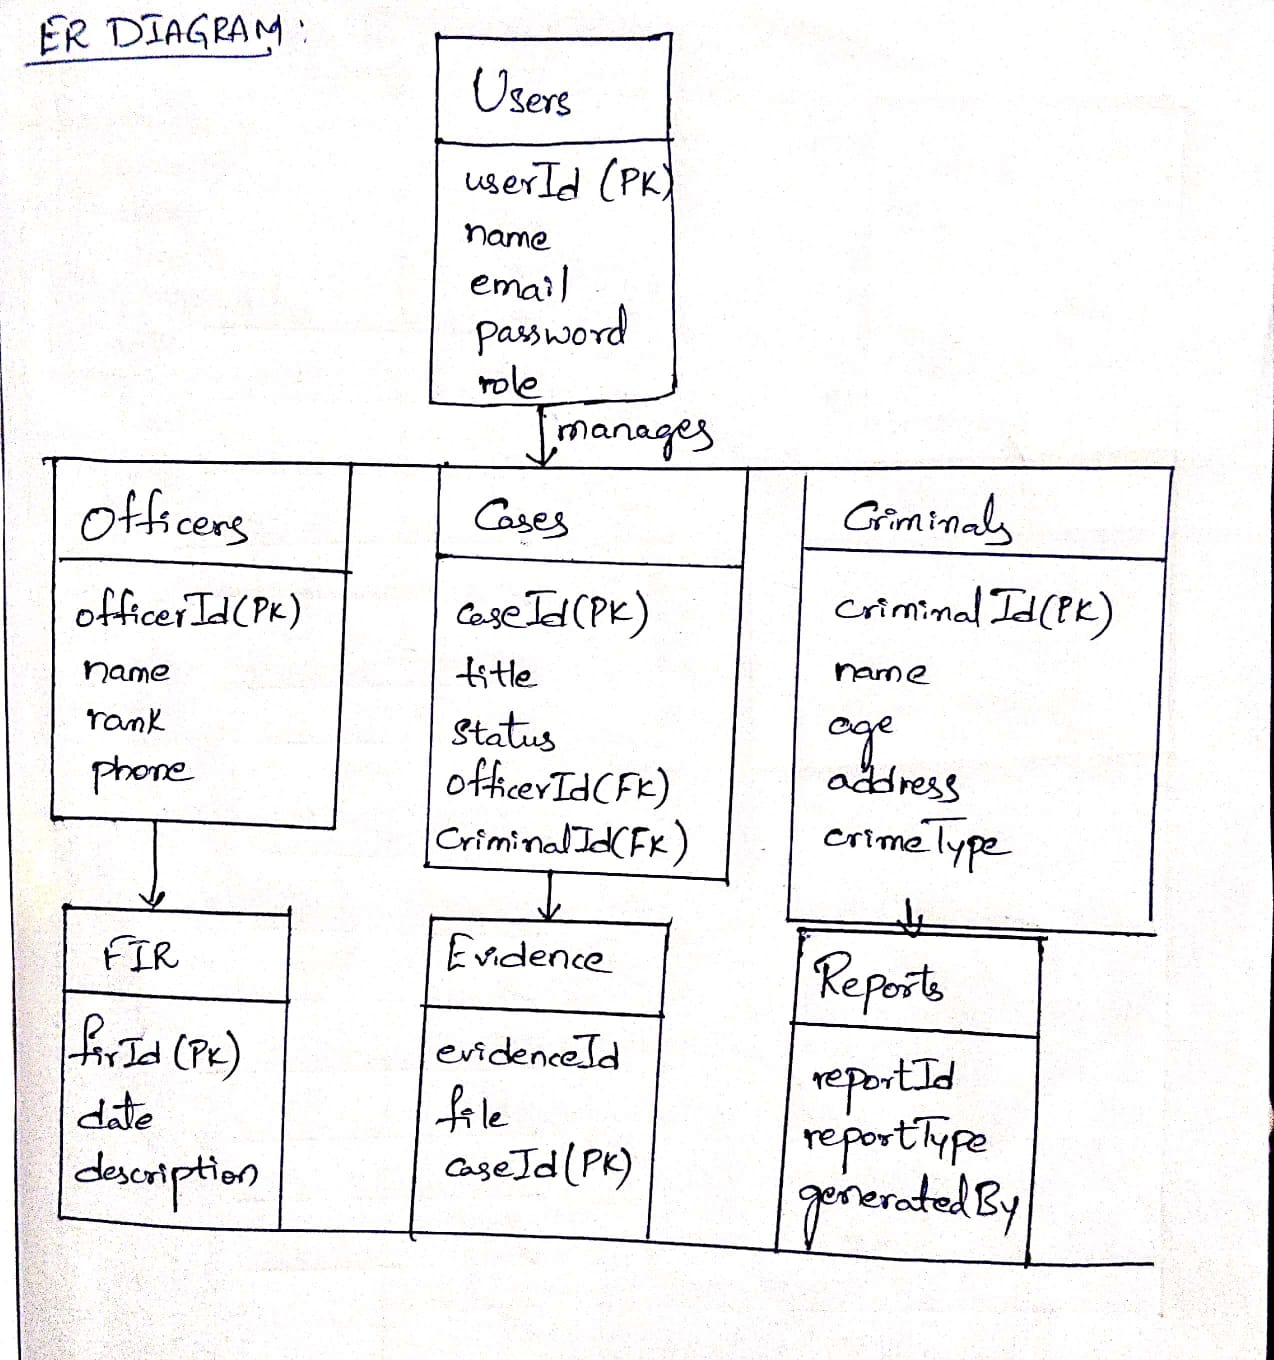 ER DIAGRAM:
Users
userId (PK)
name
email
password
role
manages
Officers
officerId(PK)
name
rank
phone
Cases
CaseId(PK)
title
Status
OfficerId(FK)
CriminalId(FK)
Criminals
CriminalId(PK)
name
age
address
crimeType
FIR
firId (PK)
date
description
Evidence
evidenceId
file
CaseId(PK)
Reports
reportId
reportType
generatedBy